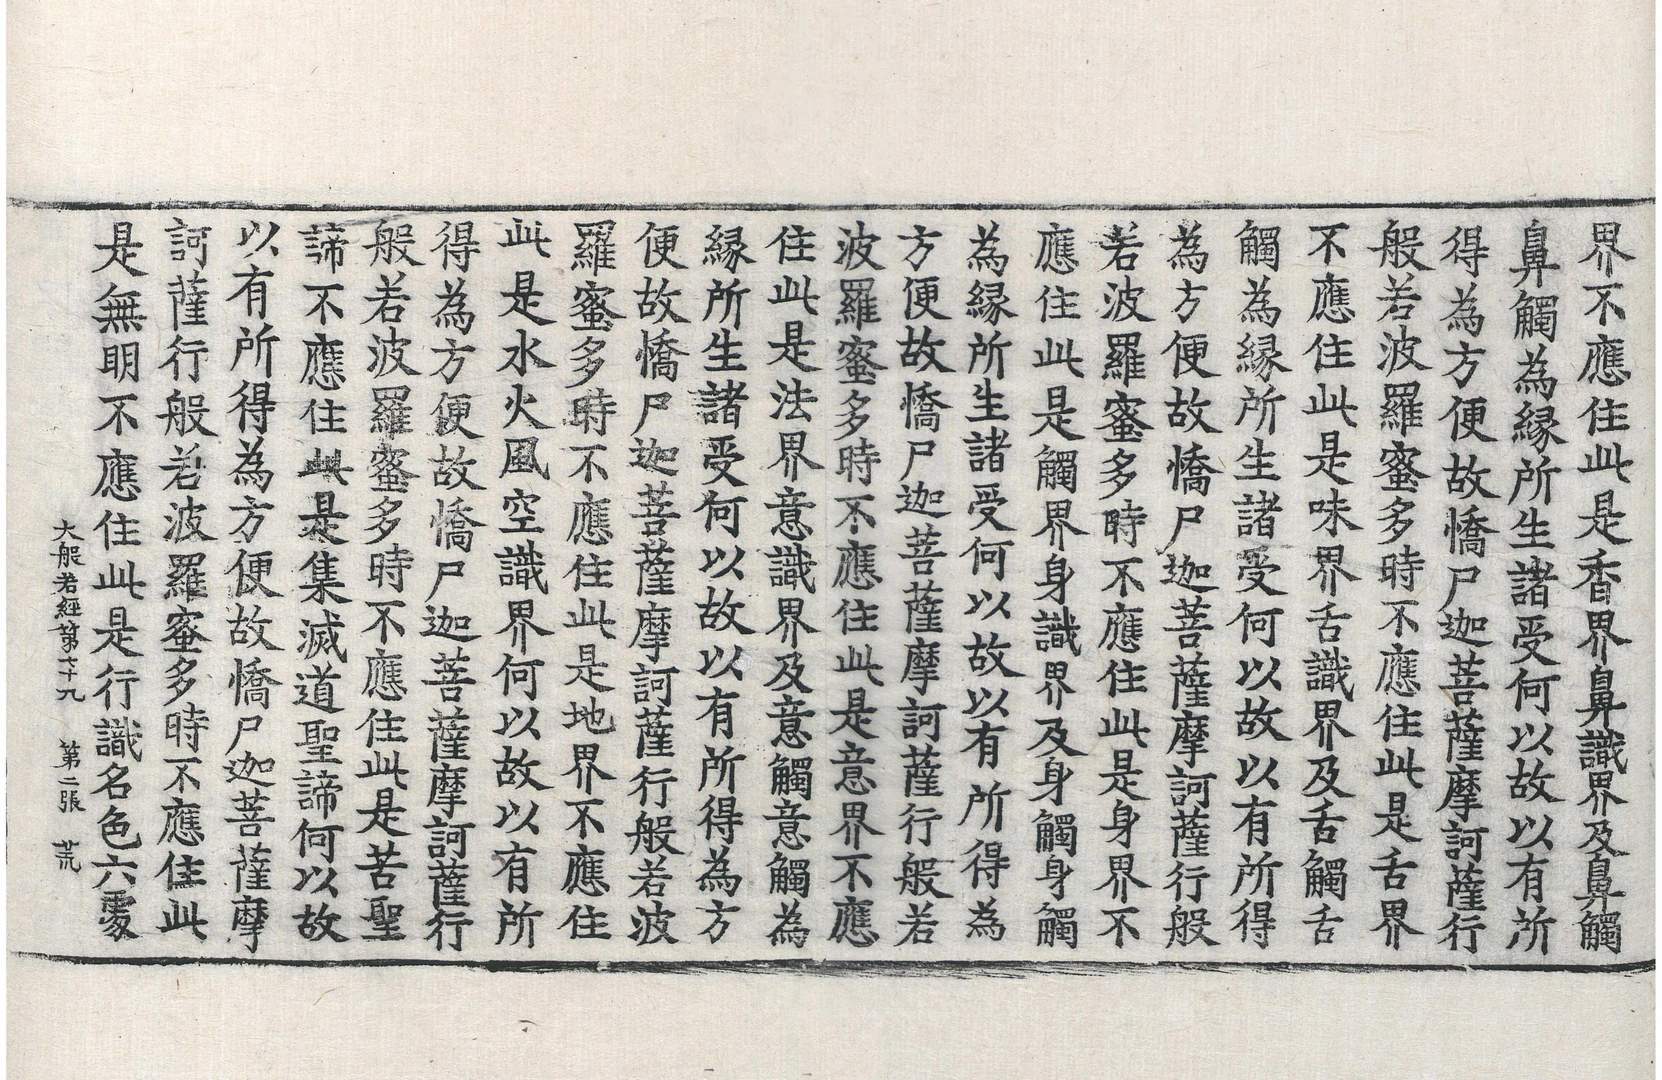 界不應住此是香界鼻識界及鼻觸
鼻觸為緣所生諸受何以故以有所
得為方便故憍尸迦菩薩摩訶薩行
般若波羅蜜多時不應住此是舌界
不應住此是味界舌識界及舌觸舌
觸為緣所生諸受何以故以有所得
為方便故憍尸迦菩薩摩訶薩行般
若波羅蜜多時不應住此是身界不
應住此是觸界身識界及身觸身觸
為緣所生諸受何以故以有所得為
方便故憍尸迦菩薩摩訶薩行般若
波羅蜜多時不應住此是意界不應
住此是法界意識界及意觸意觸為
緣所生諸受何以故以有所得為方
便故憍尸迦菩薩摩訶薩行般若波
羅蜜多時不應住此是地界不應住
此是水火風空識界何以故以有所
得為方便故憍尸迦菩薩摩訶薩行
般若波羅蜜多時不應住此是苦聖
諦不應住此是集滅道聖諦何以故
以有所得為方便故憍尸迦菩薩摩
訶薩行般若波羅蜜多時不應住此
是無明不應住此是行識名色六處
大般若經第七十九 第二張 荒